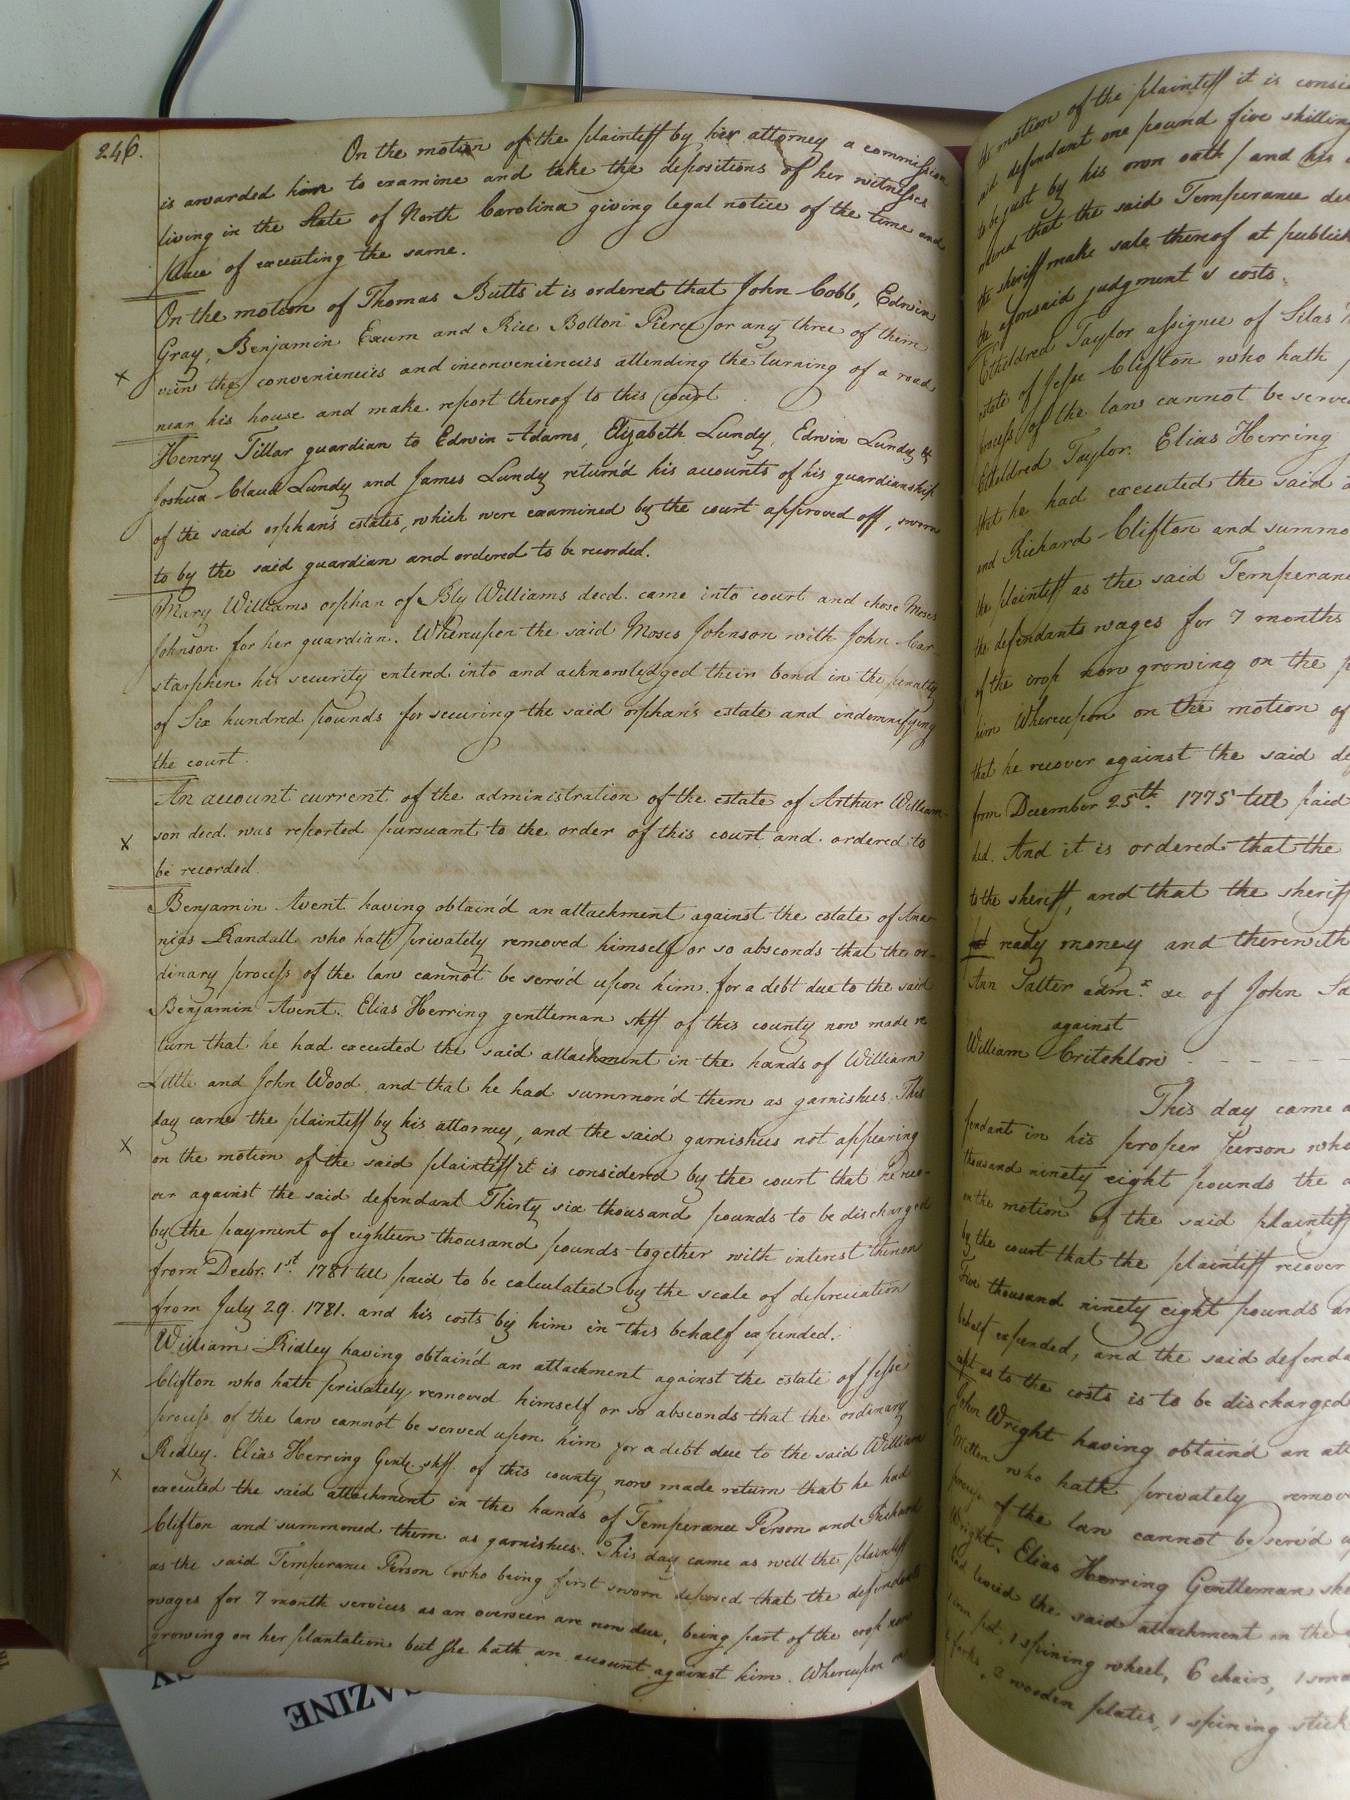 246.
On the motion of the plaintiff by her attorney a commission
is awarded him to examine and take the depositions of her witnesses
living in the State of North Carolina giving legal notice of the time and
place of executing the same.
On the motion of Thomas Butts it is ordered that John Cobb, Edwin
Gray, Benjamin Exum and Rice Bolton Pierce or any three of them
view the conveniencies and inconveniencies attending the turning of a road
near his house and make report thereof to this court
Henry Tillar guardian to Edwin Adams, Elizabeth Lundy, Edwin Lundy &
Joshua Claud Lundy and James Lundy return'd his accounts of his guardianship
of the said orphan's estates, which were examined by the court approved off, sworn
to by the said guardian and ordered to be recorded.
Mary Williams orphan of Bly Williams decd. came into court and chose Moses
Johnson for her guardian. Whereupon the said Moses Johnson with John Car-
starphen his security entered into and acknowledged their bond in the penalty
of Six hundred pounds for securing the said orphan's estate and indemnifying
the court.
An account current of the administration of the estate of Arthur William-
son decd. was reported pursuant to the order of this court and ordered to
be recorded.
Benjamin Avent having obtain'd an attachment against the estate of Ana-
nias Randall who hath privately removed himself or so absconds that the or-
dinary process of the law cannot be serv'd upon him for a debt due to the said
Benjamin Avent. Elias Herring gentleman shff of this county now made re
turn that he had executed the said attachment in the hands of William
Little and John Wood and that he had summon'd them as garnishees. This
day came the plaintiff by his attorney, and the said garnishees not appearing
on the motion of the said plaintiff it is considered by the court that he reco-
ver against the said defendant Thirty six thousand pounds to be discharged
by the payment of eighteen thousand pounds together with interest thereon
from Decbr. 1st. 1781 till paid to be calculated by the scale of depreciation
from July 29. 1781. and his costs by him in this behalf expended.
William Ridley having obtain'd an attachment against the estate of Jesse
Clifton who hath privately removed himself or so absconds that the ordinary
process of the law cannot be served upon him for a debt due to the said William
Ridley. Elias Herring Gent. shff. of this county now made return that he had
executed the said attachment in the hands of Temperance Person and Richard
Clifton and summoned them as garnishees. This day came as well the plaintiff
as the said Temperance Person who being first sworn deposed that the defendants
wages for 7 month services as an overseer are now due, being part of the crop now
growing on her plantation but she hath an account against him. Whereupon on
the motion of the plaintiff it is consi
said defendant one pound five shilling
to be just by his own oath / and his
ordered that the said Temperance de
the sheriff make sale thereof at publick
the aforesaid judgment & costs.
Etheldred Taylor assignee of Silas
estate of Jesse Clifton who hath
process of the law cannot be serve
Etheldred Taylor. Elias Herring
that he had executed the said a
and Richard Clifton and summo
the plaintiff as the said Temperanc
the defendants wages for 7 months
of the crop now growing on the p
him Whereupon on the motion of
that he recover against the said de
from December 25th. 1775 till paid
ded. And it is ordered that the
to the sheriff, and that the sheriff
ready money and therewith
Ann Salter admx. &c of John Sa
against
William Critchlow
This day came a
fendant in his proper person who
thousand ninety eight pounds the
on the motion of the said plaintiff
by the court that the plaintiff recover
Five thousand ninety eight pounds an
behalf expended, and the said defenda
as to the costs is to be discharged
John Wright having obtain'd an att
who hath privately remov
process of the law cannot be serv'd u
Wright. Elias Herring Gentleman she
had levied the said attachment on the
pot, 1 spining wheel, 6 chairs, 1 sma
forks, 2 wooden plates, 1 spining stick
AZINE